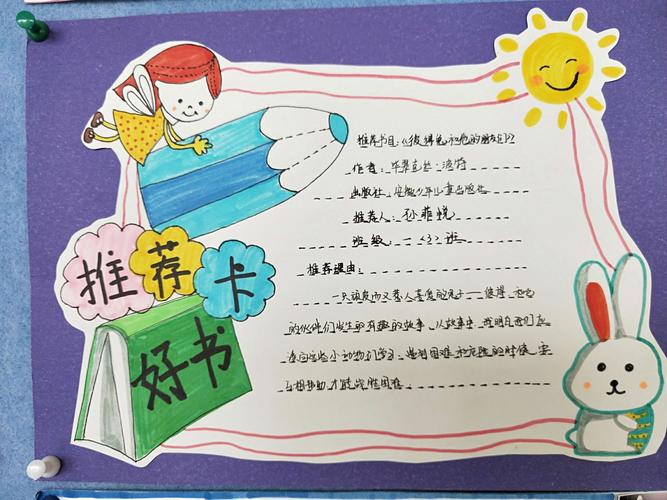 推荐卡
好书
推荐书目:《彼得兔和他的朋友们》
作者:毕翠克丝·波特
出版社:安徽少年儿童出版社
推荐人:孙菲悦
班级:一〈3〉班
推荐理由:
一只顽皮而又惹人喜爱的兔子——彼得和它
的伙伴们发生的有趣的故事。从故事中,我明白我们应
该向这些小动物们学习,遇到困难和危险的时候,要
互相帮助才能战胜困难。